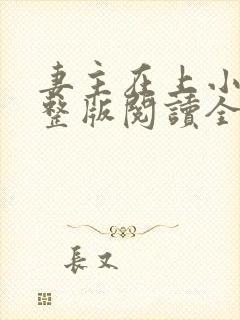 妻主在上小
整版閱讀全
長又